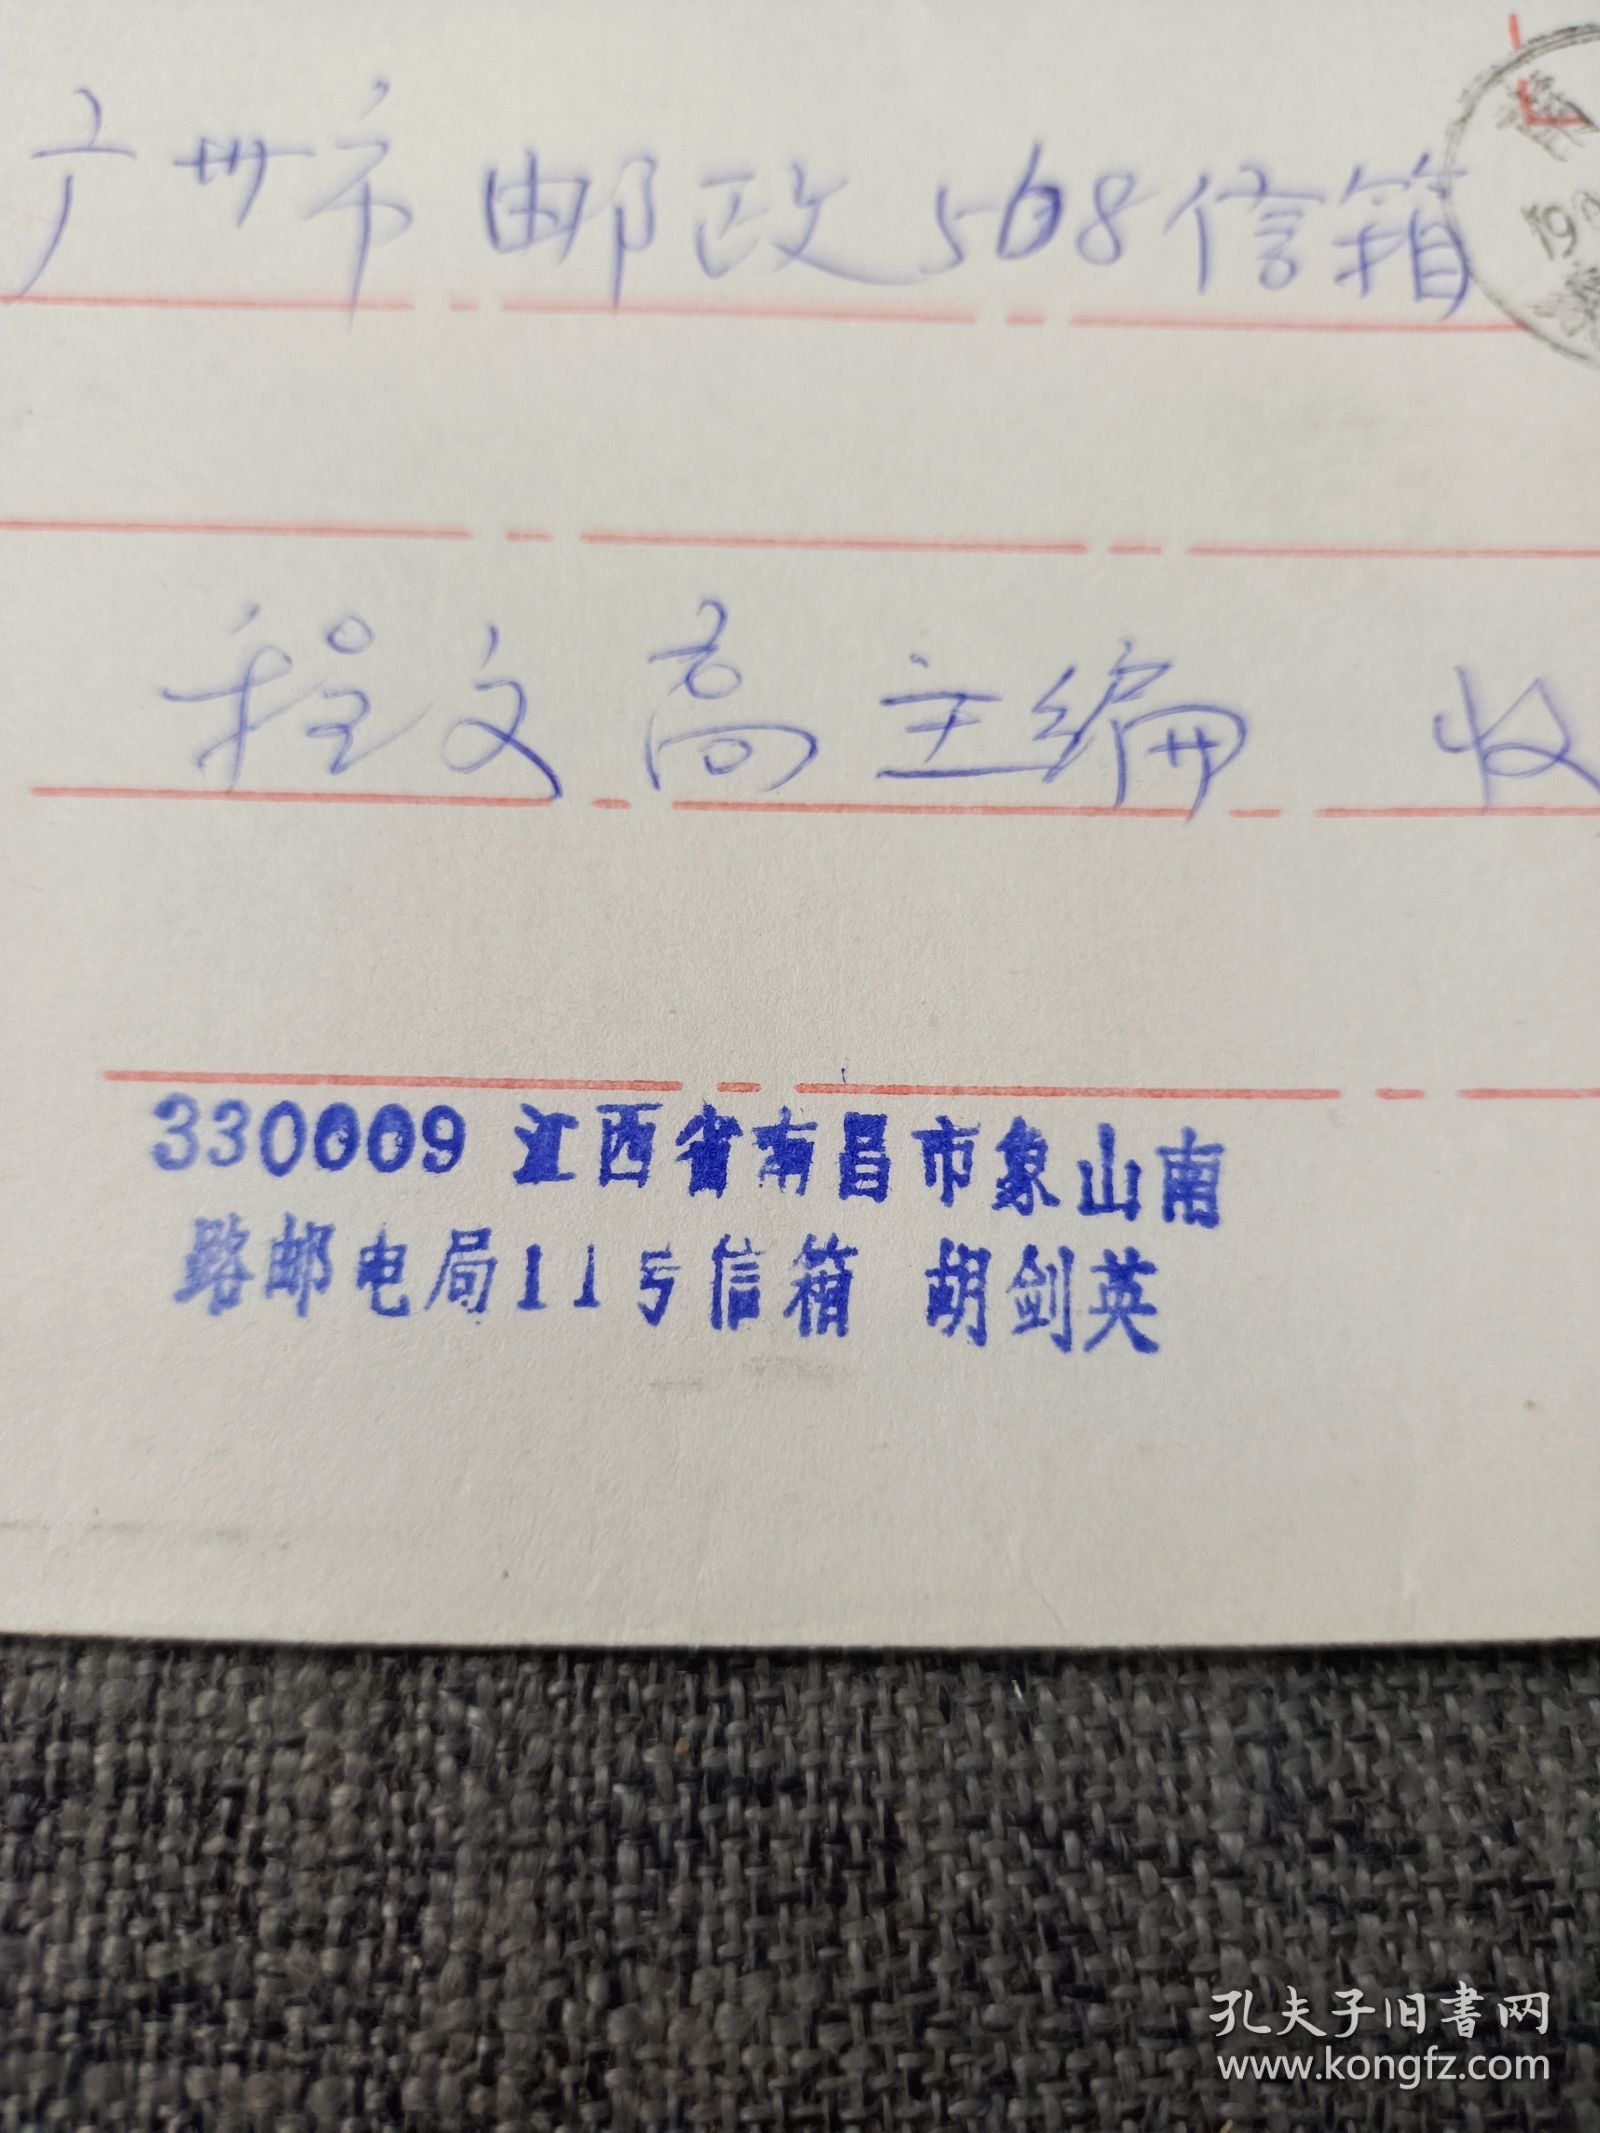 广州市邮政568信箱
程文高主编 收
330009 江西省南昌市象山南
路邮电局11号信箱 胡剑英
孔夫子旧書网
www.kongfz.com